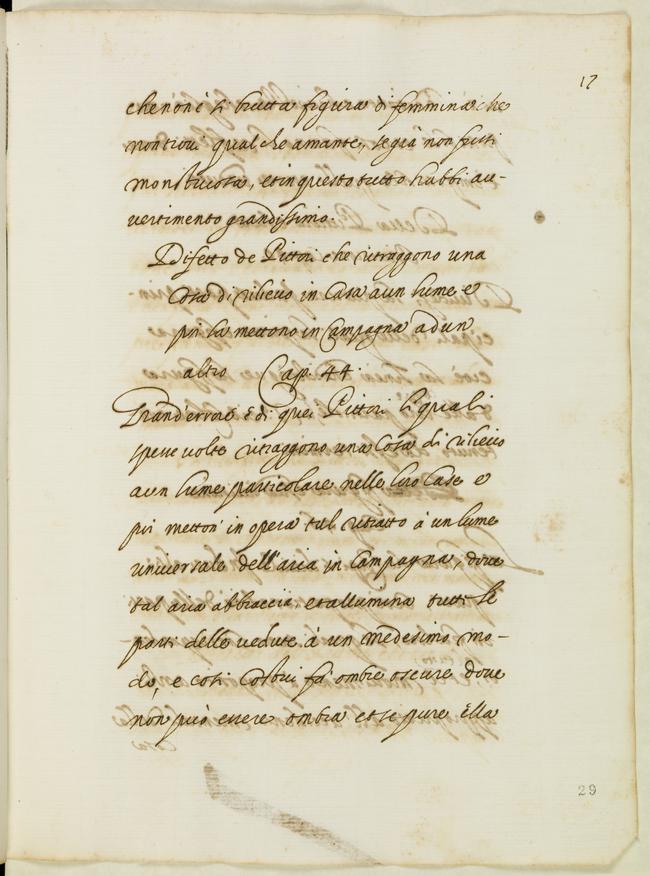 17
che non è sì brutta figura di femmina che
non trovi qualche amante, se già non fussi
monstruosa, et in questo tutto habbi au-
vertimento grandissimo.
Difetto de Pittori che ritraggono una
Cosa di rilievo in Casa a un lume e
poi la mettono in Campagna ad un
altro Cap. 44.
Grand'errore è di quei Pittori li quali
spesse volte ritraggono una Cosa di rilievo
a un lume particolare nelle loro Case e
poi metton' in opera tal ritratto à un lume
universale dell'aria in Campagna, dove
tal aria abbraccia, et allumina tutte le
parti delle vedute à un medesimo mo-
do, e così Costui fà ombre oscure dove
non può essere ombra et se pure ella
29